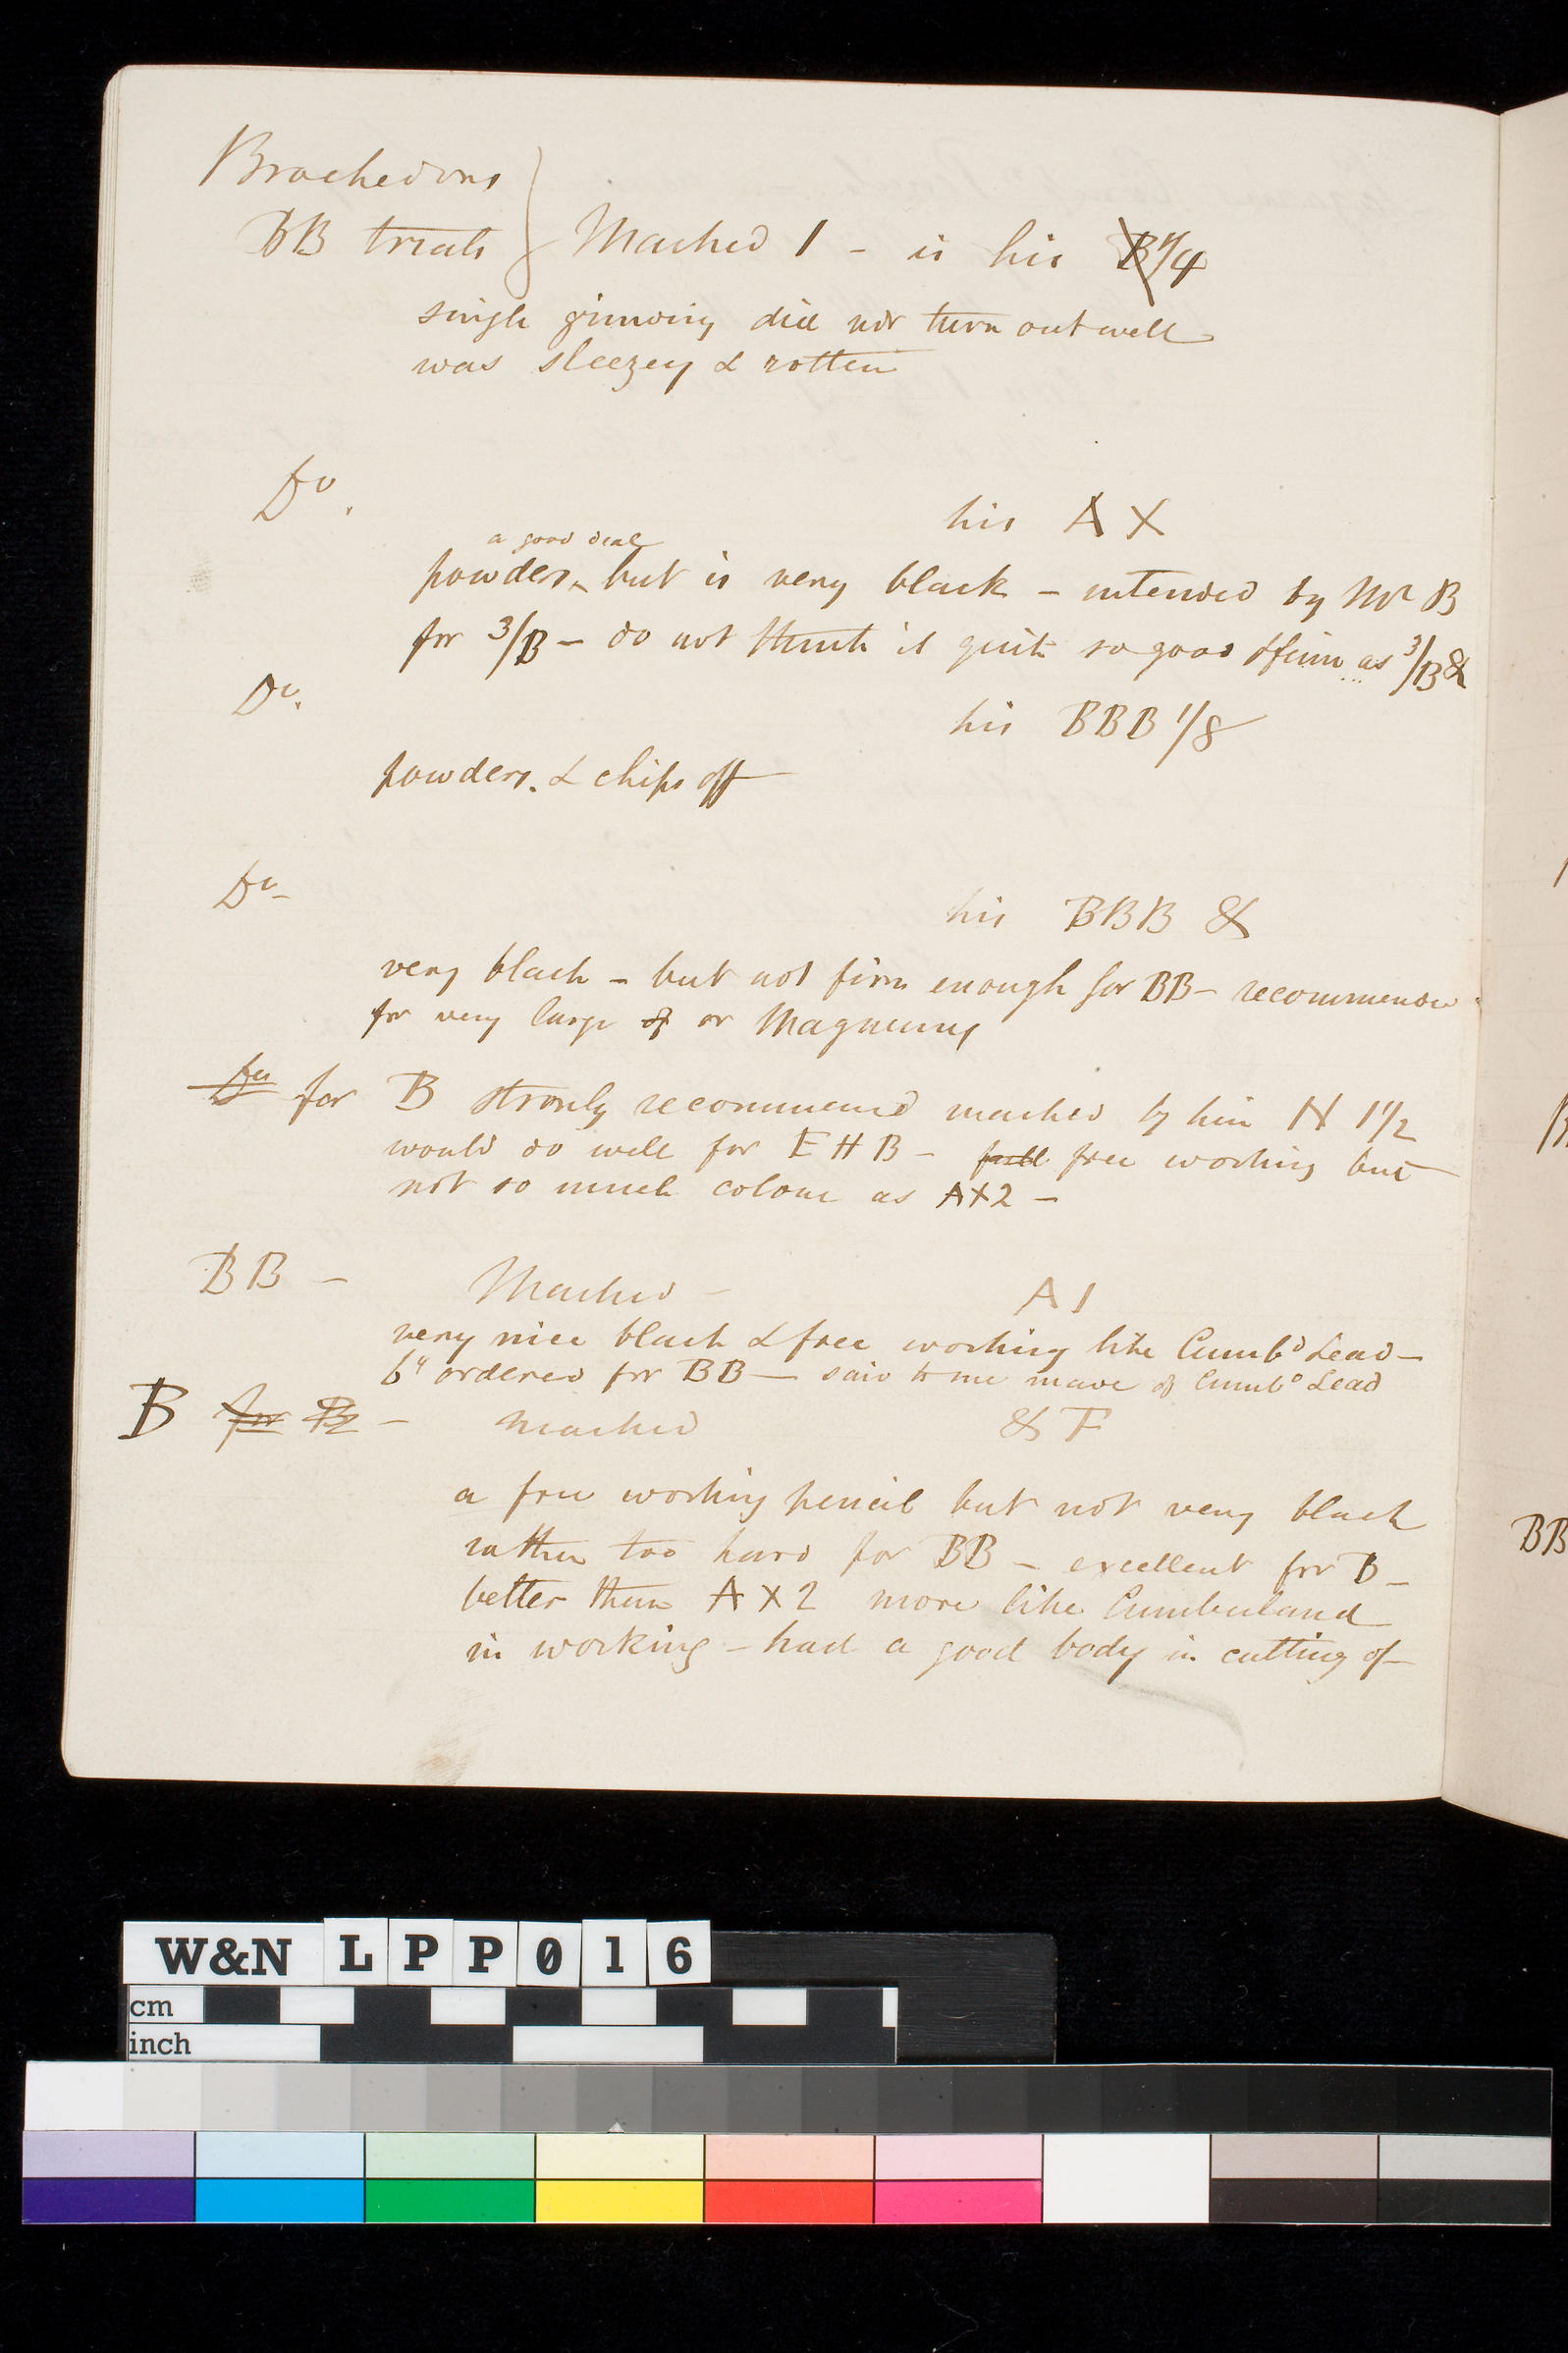 Brockedons
BB trials } Marked 1 - is his B 1/4
single grinding did not turn out well
was sleezey & rotten
Do.
his A X
a good deal
powders, but is very black - intended by Mr B
for 3/B - do not think it quite so good & firm as 3/B &
Do.
his BBB 1/8
powders. & chips off
Do -
his BBB &
very black - but not firm enough for BB - recommended
for very large of or Magnums
Do for B strongly recommend marked by him N 1 1/2
would do well for E H B - full free working but
not so much colour as AX2 -
BB - Marked - A 1
very nice black & free working like Cumbd Lead -
6" ordered for BB - said to me made of Cumbd Lead
B for B2 - marked & F
a free working pencil but not very black
rather too hard for BB - excellent for B -
better than A X 2 more like Cumberland
in working - had a good body in cutting of
BB
W&N LPP016
cm
inch